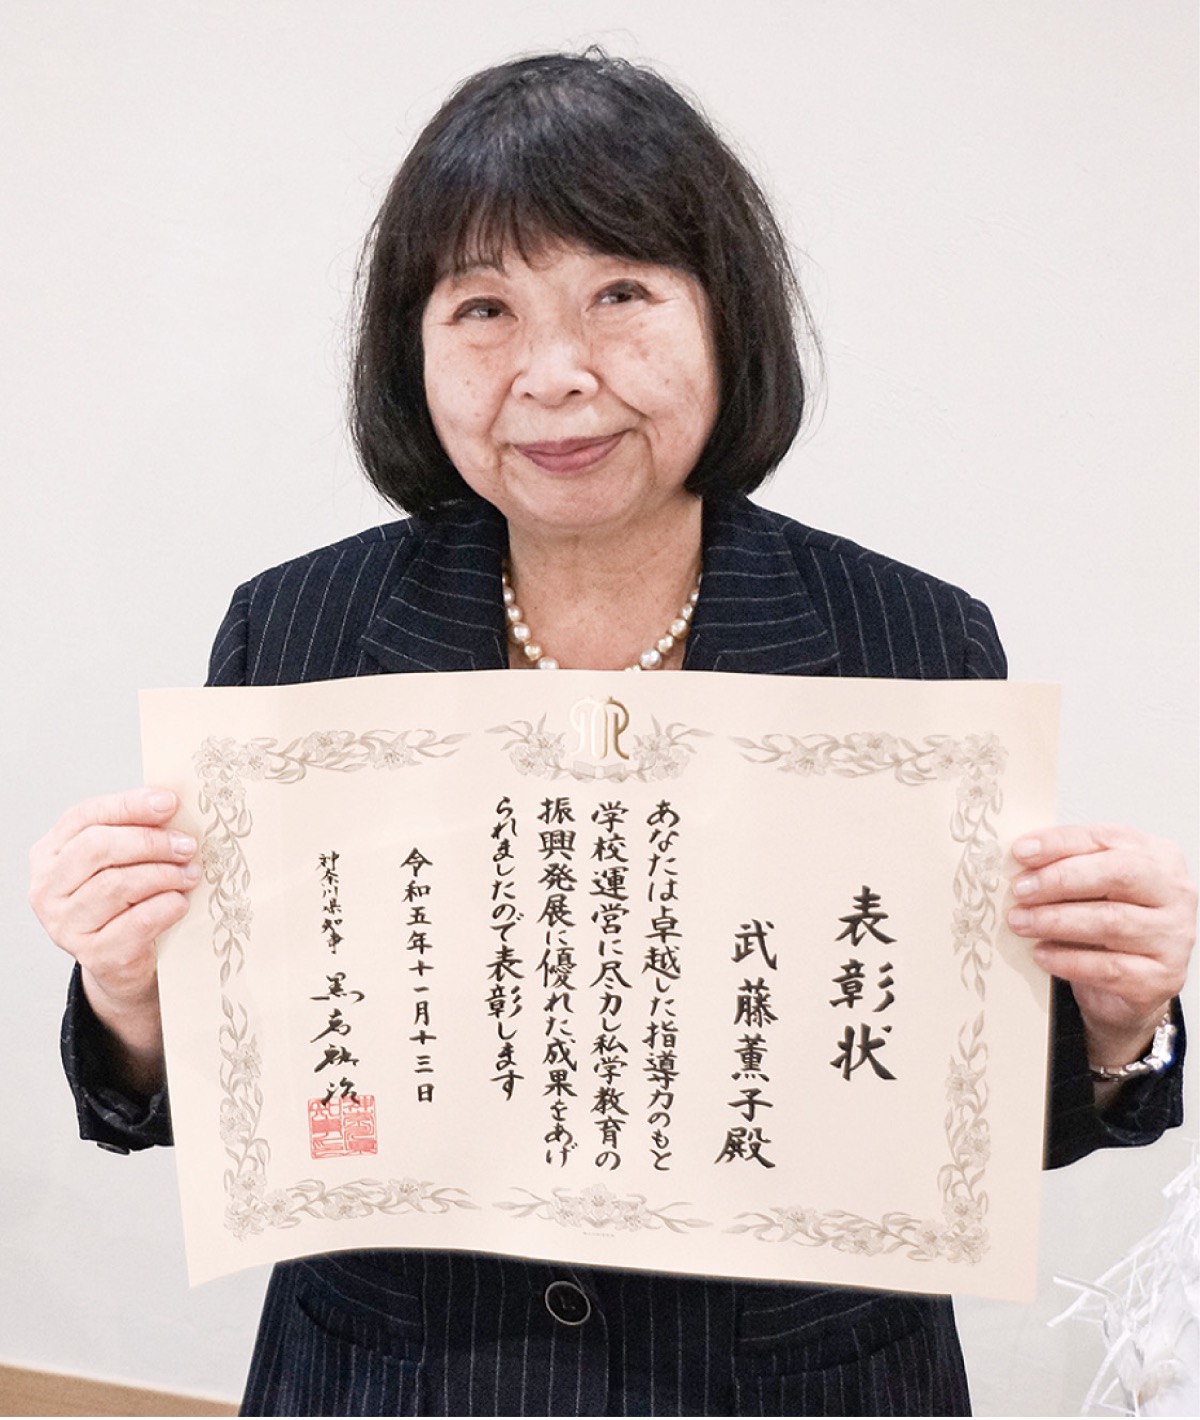 表彰状
武藤薫子殿
あなたは卓越した指導力のもと
学校運営に尽力し私学教育の
振興発展に優れた成果をあげ
られましたので表彰します
令和五年十一月十三日
神奈川県知事 黒岩祐治